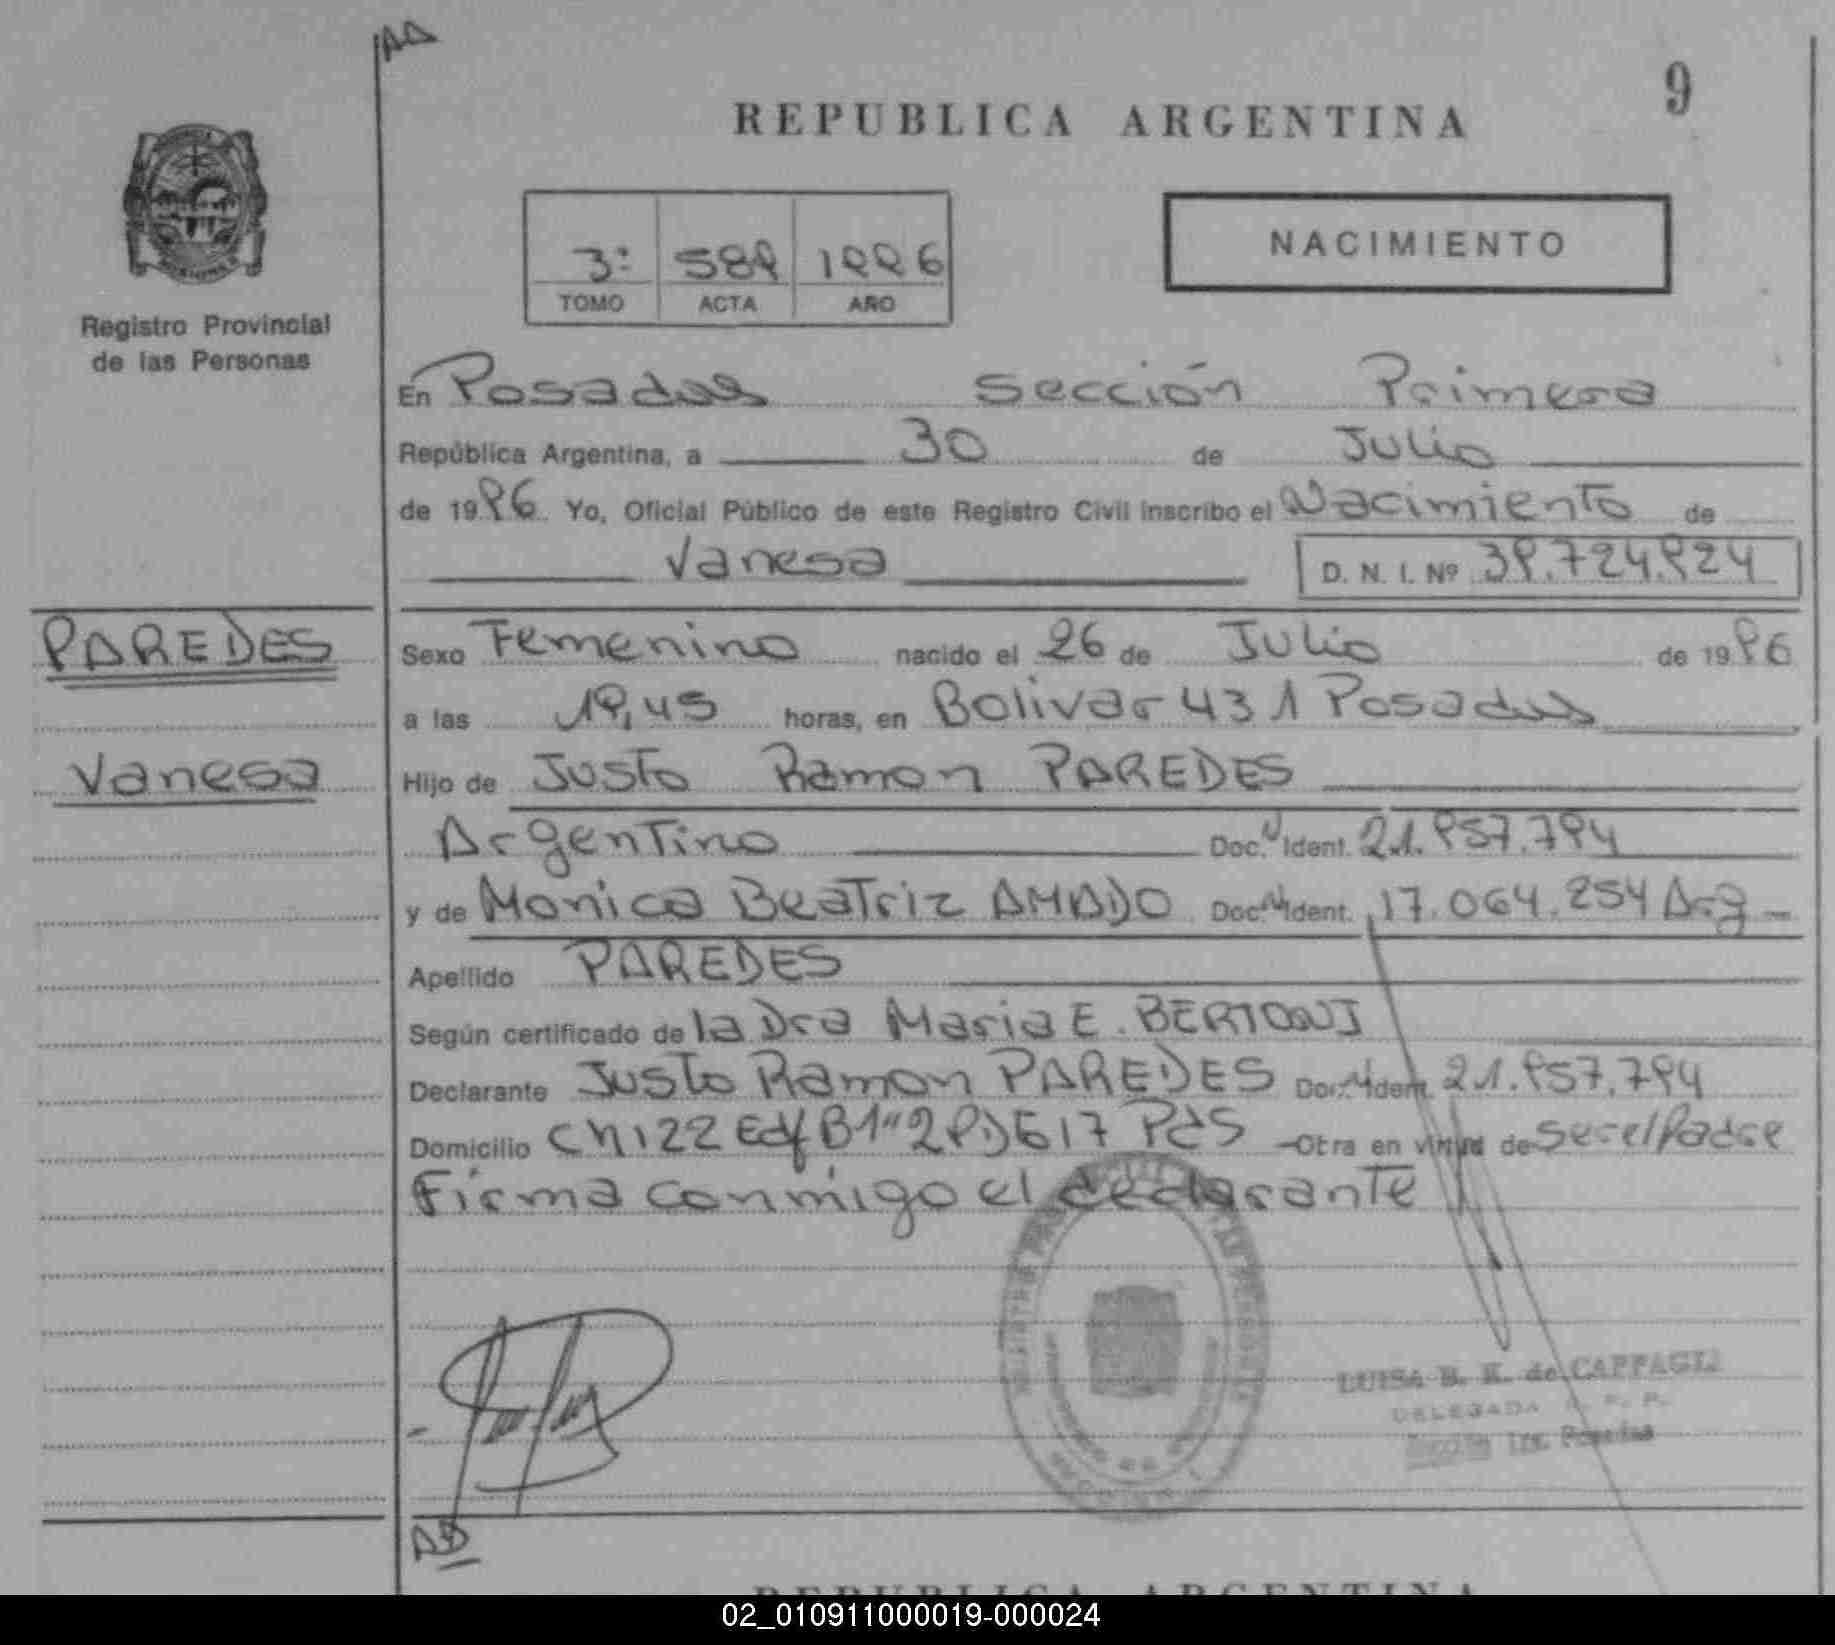 AD
9
REPUBLICA ARGENTINA
3º 589 1996
TOMO ACTA AÑO
NACIMIENTO
Registro Provincial
de las Personas
En Posadas Sección Primera
República Argentina, a 30 de Julio
de 1996 Yo, Oficial Público de este Registro Civil inscribo el Nacimiento de
Vanesa D. N. I. Nº 39.724.924
PAREDES
Sexo Femenino nacido el 26 de Julio de 1996
a las 19,45 horas, en Bolivar 431 Posadas
Vanesa
Hijo de Justo Ramon PAREDES
Argentino Doc. N Ident. 21.957.794
y de Monica Beatriz AMADO Doc. N Ident. 17.064.254 Arg
Apellido PAREDES
Según certificado de la Dra Maria E. BERTONI
Declarante Justo Ramon PAREDES Doc. N Ident. 21.957.794
Domicilio Ch122 Edf B1 2P D617 Pdas Otra en virtud de ser el Padre
Firma conmigo el declarante
LUISA B. K. de
DELEGADA R. P. P.
Sección 1ra. Posadas
AD
REPUBLICA ARGENTINA
02_010911000019-000024